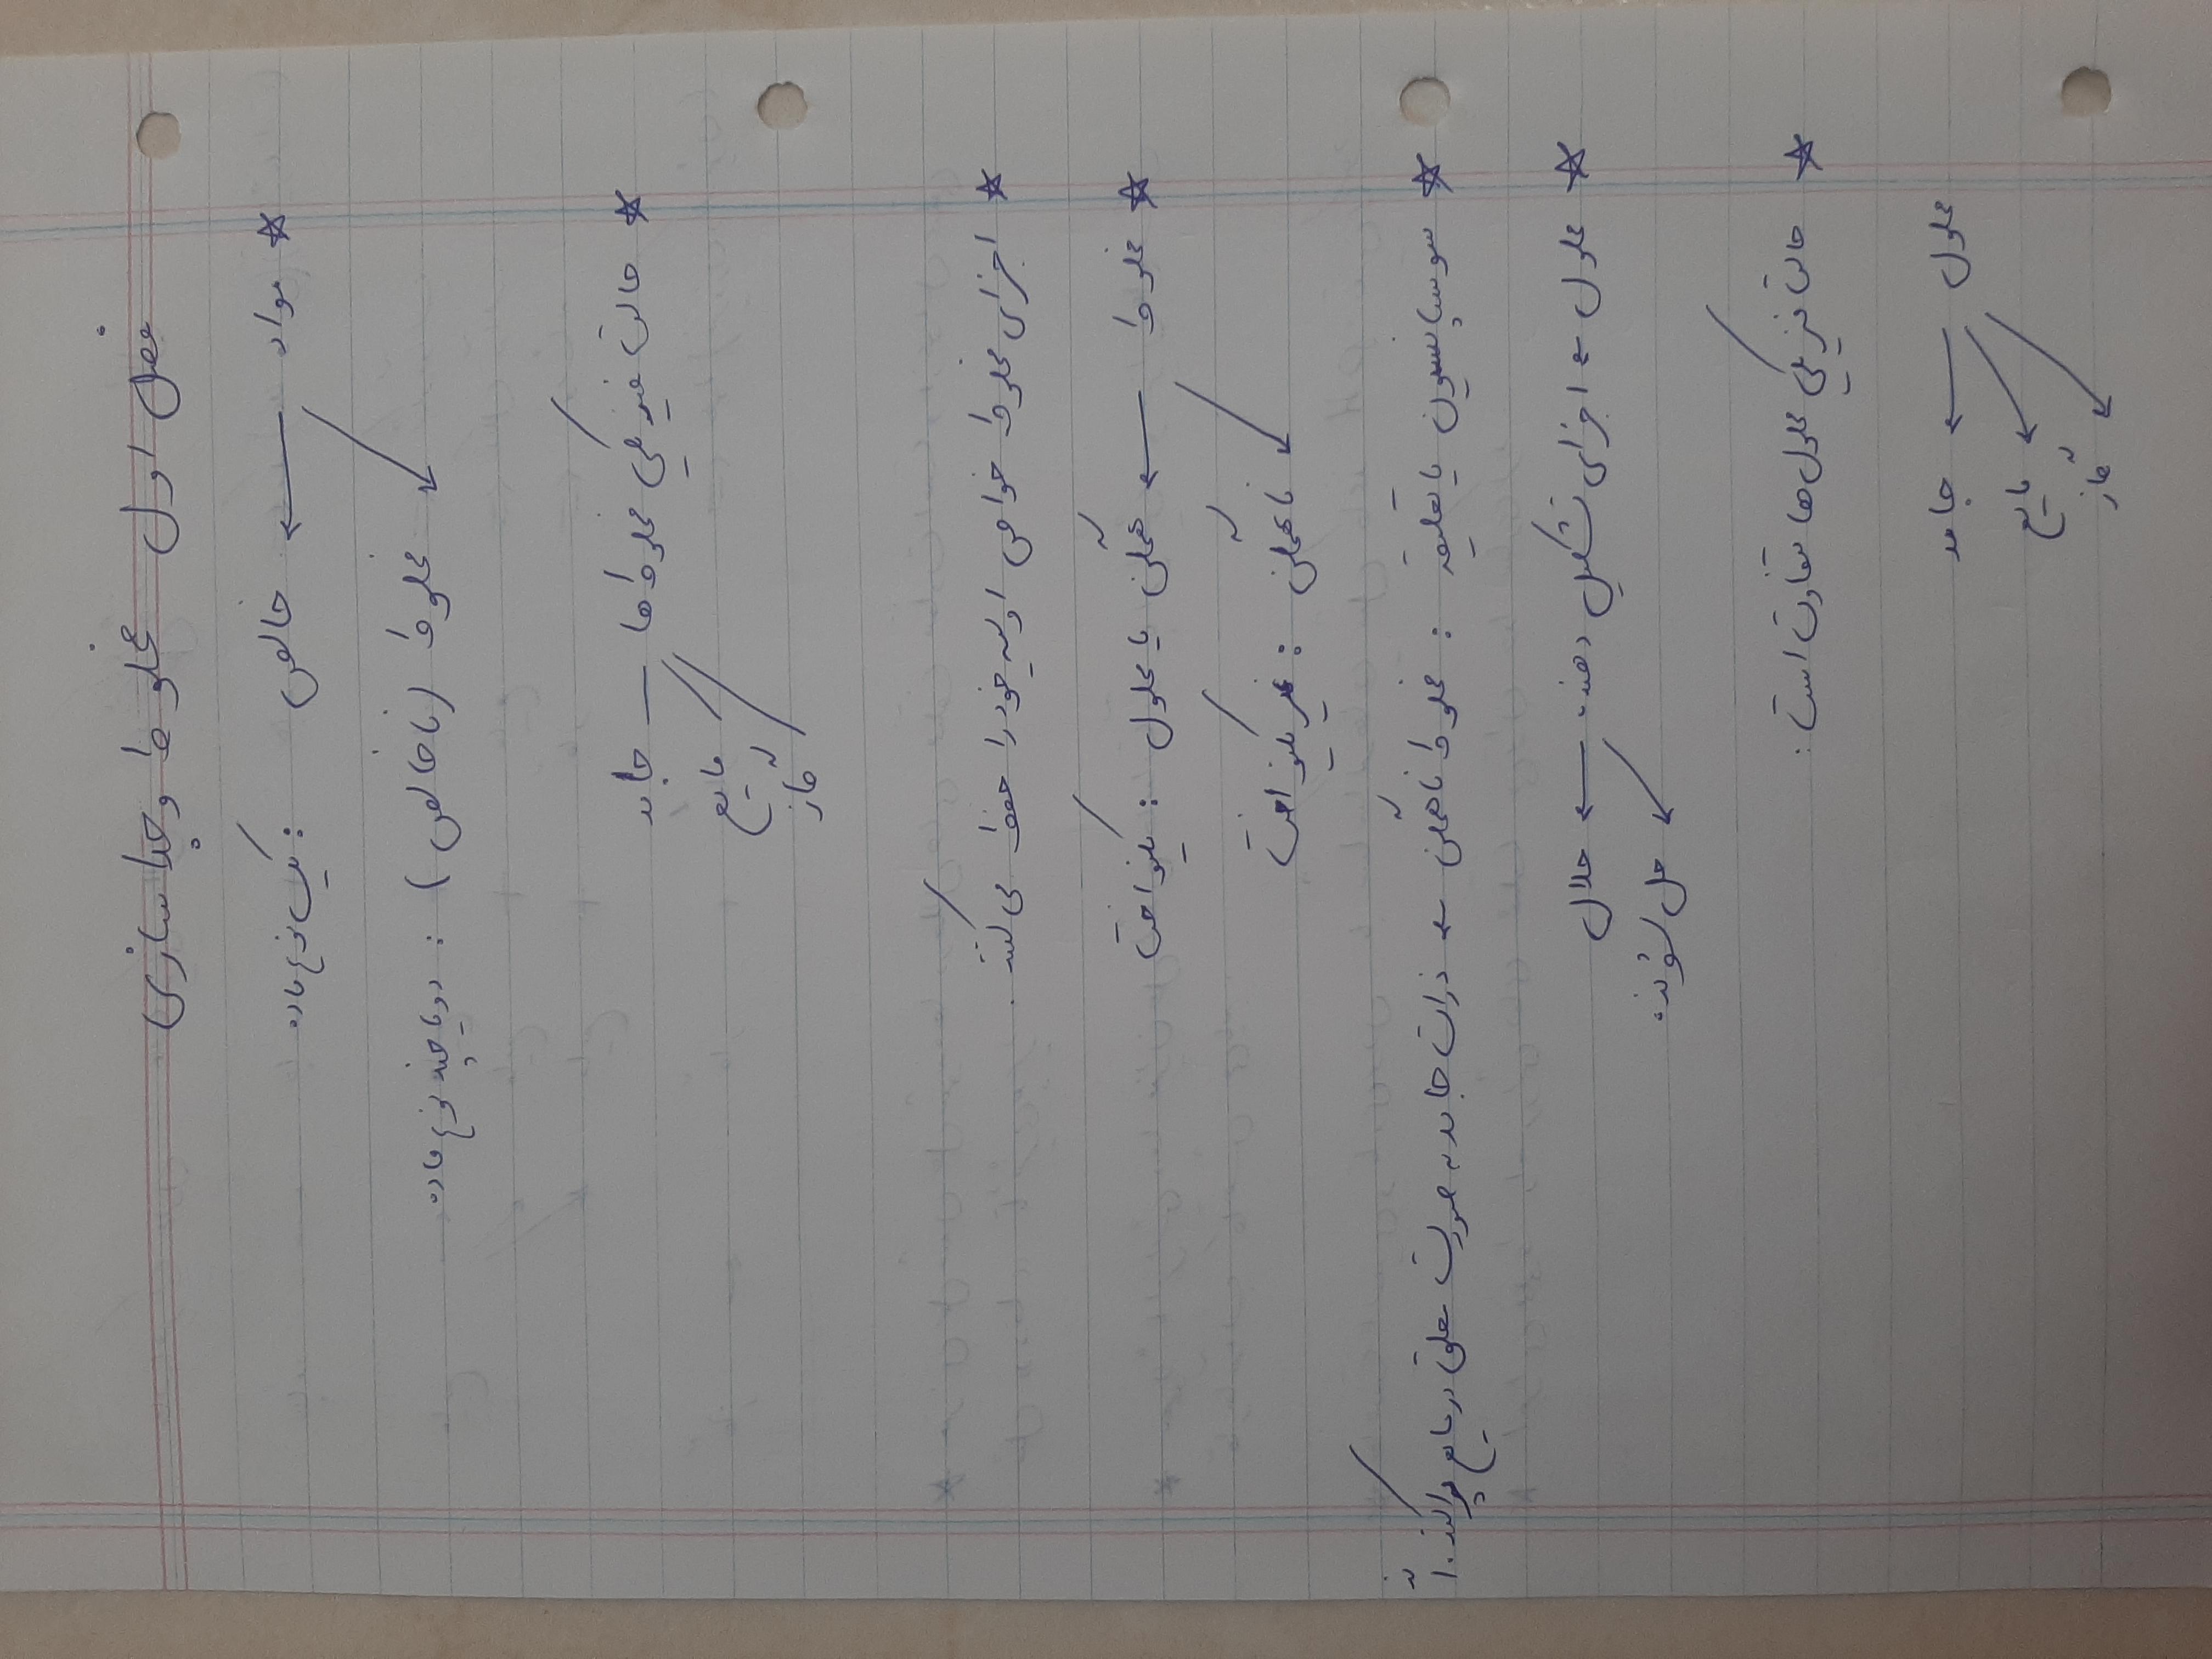 فصل اول مخلوط ها و جداسازی
☆ مواد ← خالص : یک نوع ماده
↙ مخلوط (ناخالص) : دو یا چند نوع ماده
☆ حالت فیزیکی مخلوط ها — جامد
مایع
گاز
☆ اجزای مخلوط خواص اولیه خود را حفظ می کنند .
☆ مخلوط ← همگن یا محلول : یکنواخت
↙ ناهمگن : غیر یکنواخت
☆ سوسپانسیون یا تعلیقه : مخلوط ناهمگن ← ذرات جامد به صورت معلق در مایع پراکنده اند.
☆ محلول ← اجزای تشکیل دهنده ← حلال
↙ حل شونده
☆ حالت فیزیکی محلول ها متفاوت است :
محلول ← جامد
↙ مایع
↙ گاز